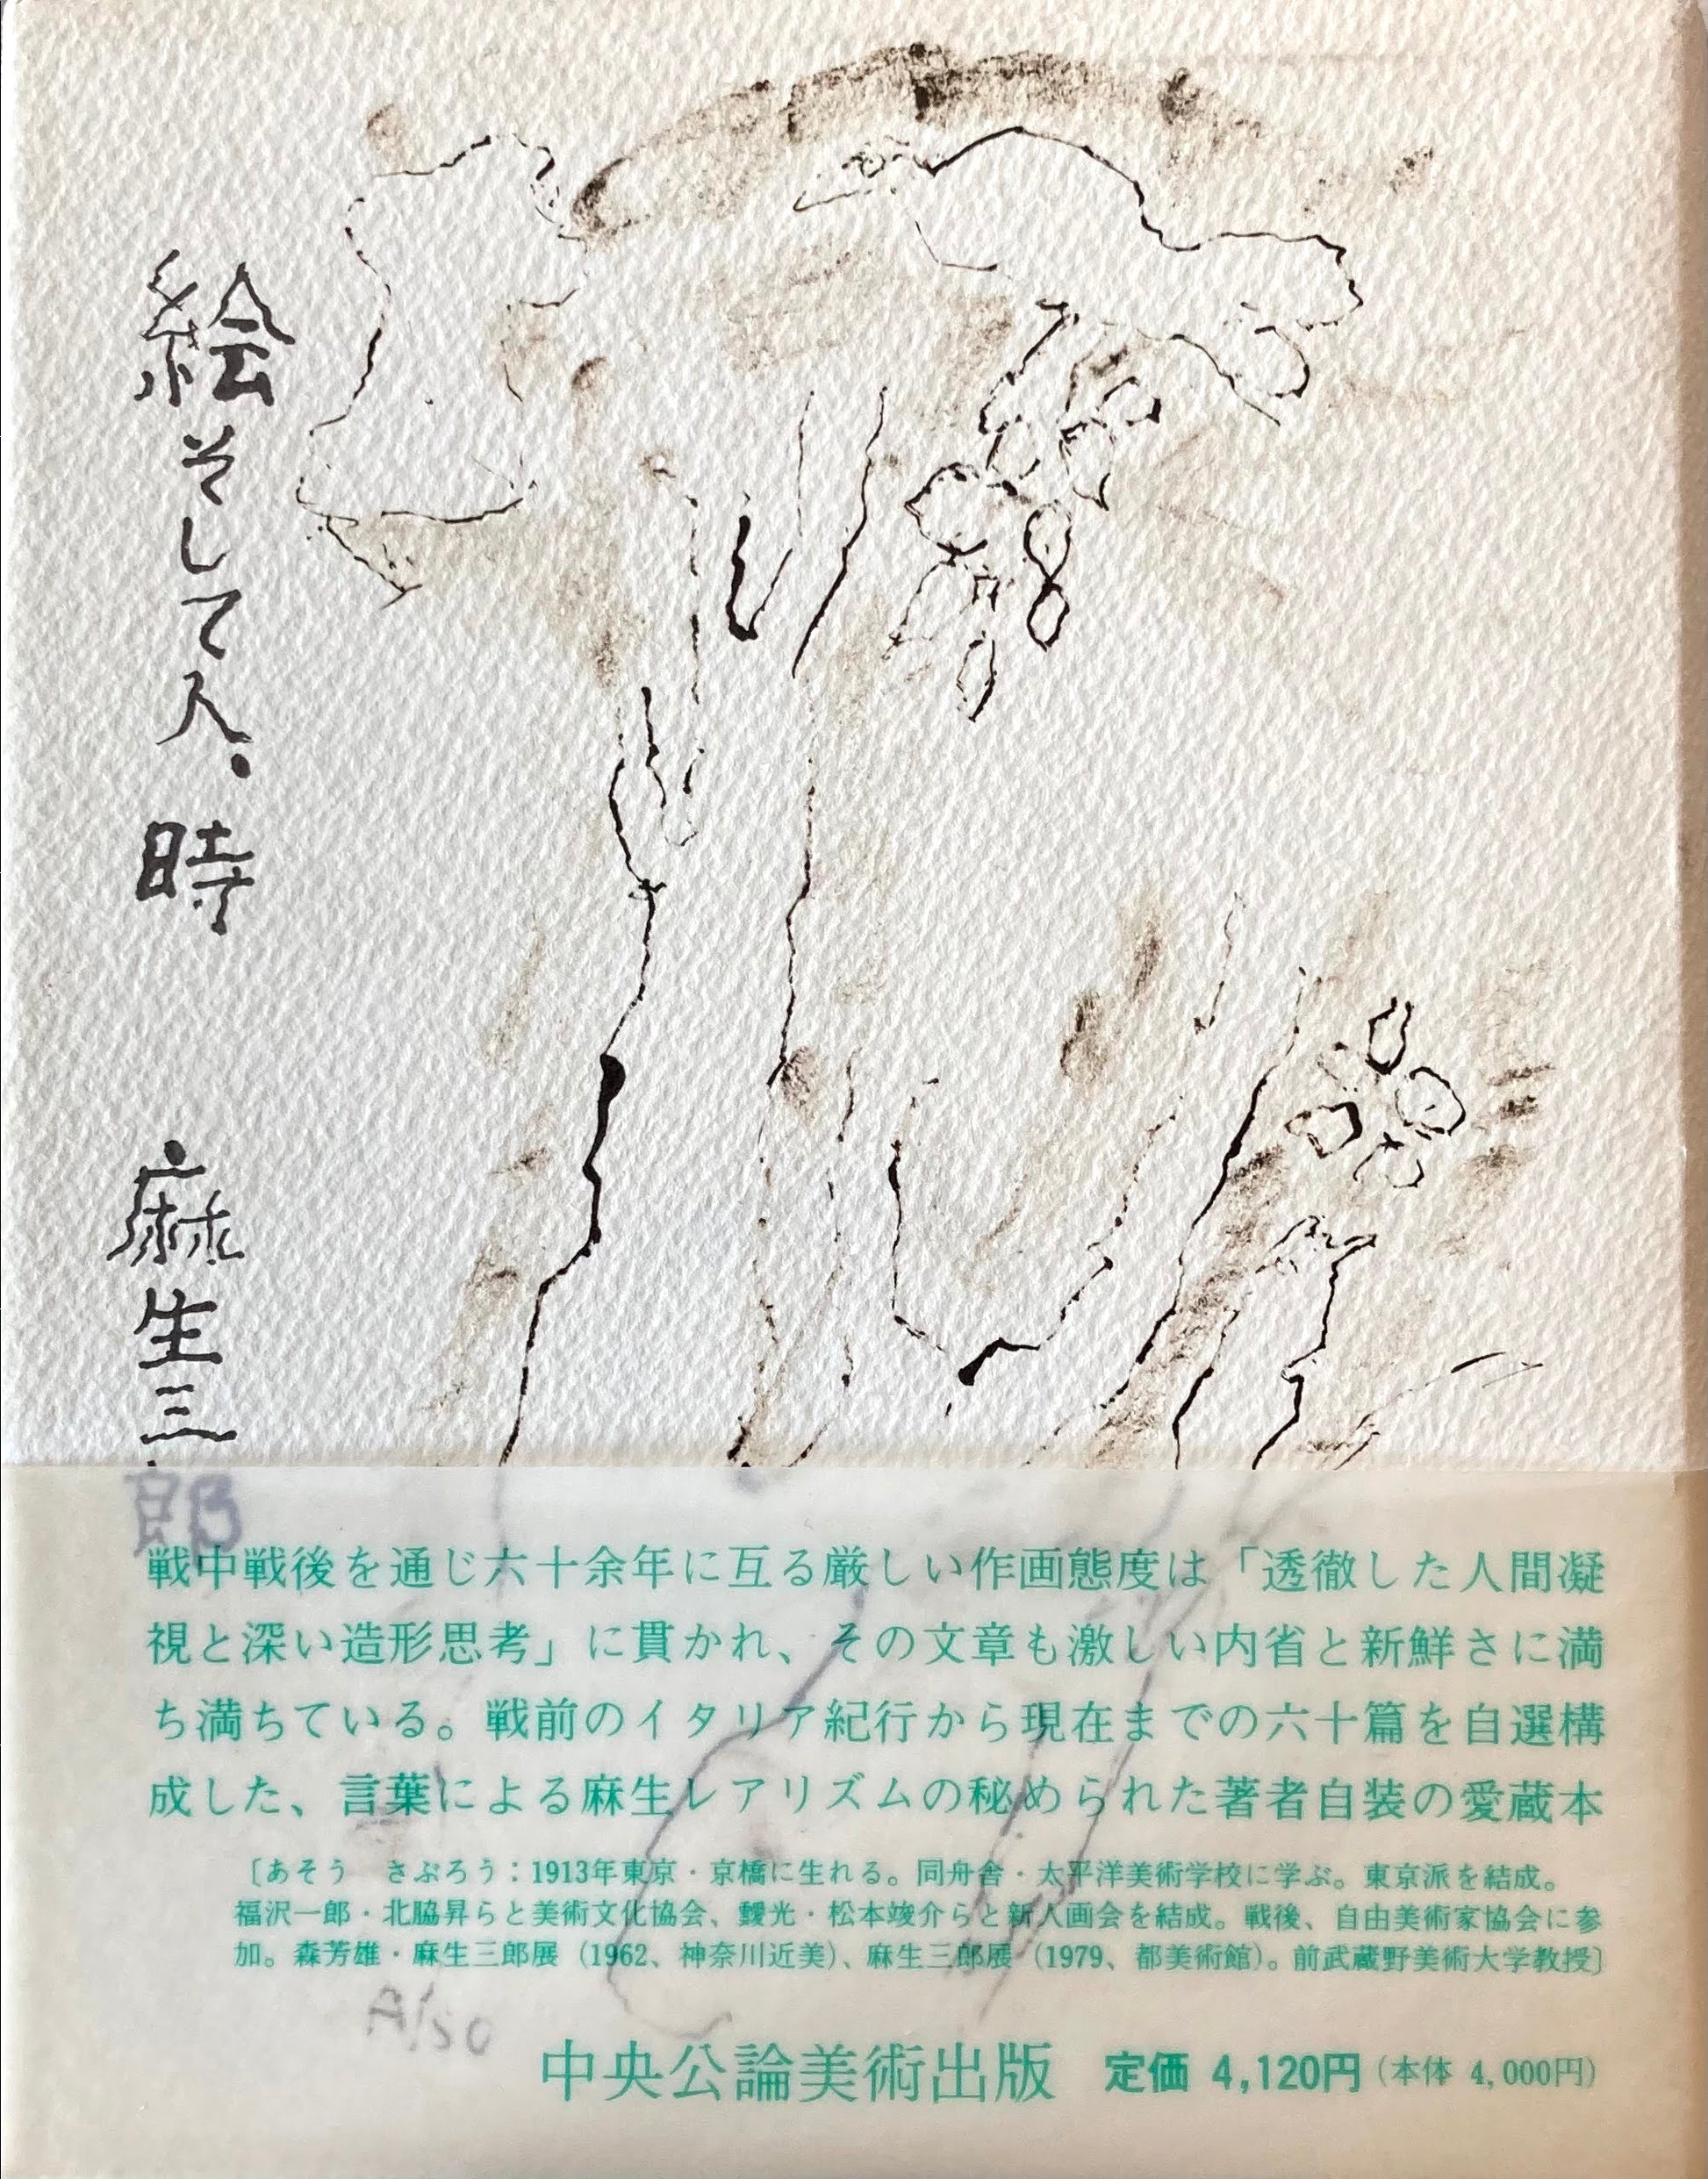 絵そして人。時
麻生三郎
戦中戦後を通じ六十余年に亙る厳しい作画態度は「透徹した人間凝
視と深い造形思考」に貫かれ、その文章も激しい内省と新鮮さに満
ち満ちている。戦前のイタリア紀行から現在までの六十篇を自選構
成した、言葉による麻生レアリズムの秘められた著者自装の愛蔵本
〔あそう　さぶろう：1913年東京・京橋に生れる。同舟舎・太平洋美術学校に学ぶ。東京派を結成。
福沢一郎・北脇昇らと美術文化協会、靉光・松本竣介らと新人画会を結成。戦後、自由美術家協会に参
加。森芳雄・麻生三郎展（1962、神奈川近美）、麻生三郎展（1979、都美術館）。前武蔵野美術大学教授〕
Aso
中央公論美術出版　定価 4,120円（本体 4,000円）